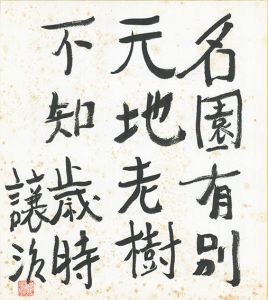 名園有別
元地老樹
不知歳時
譲治